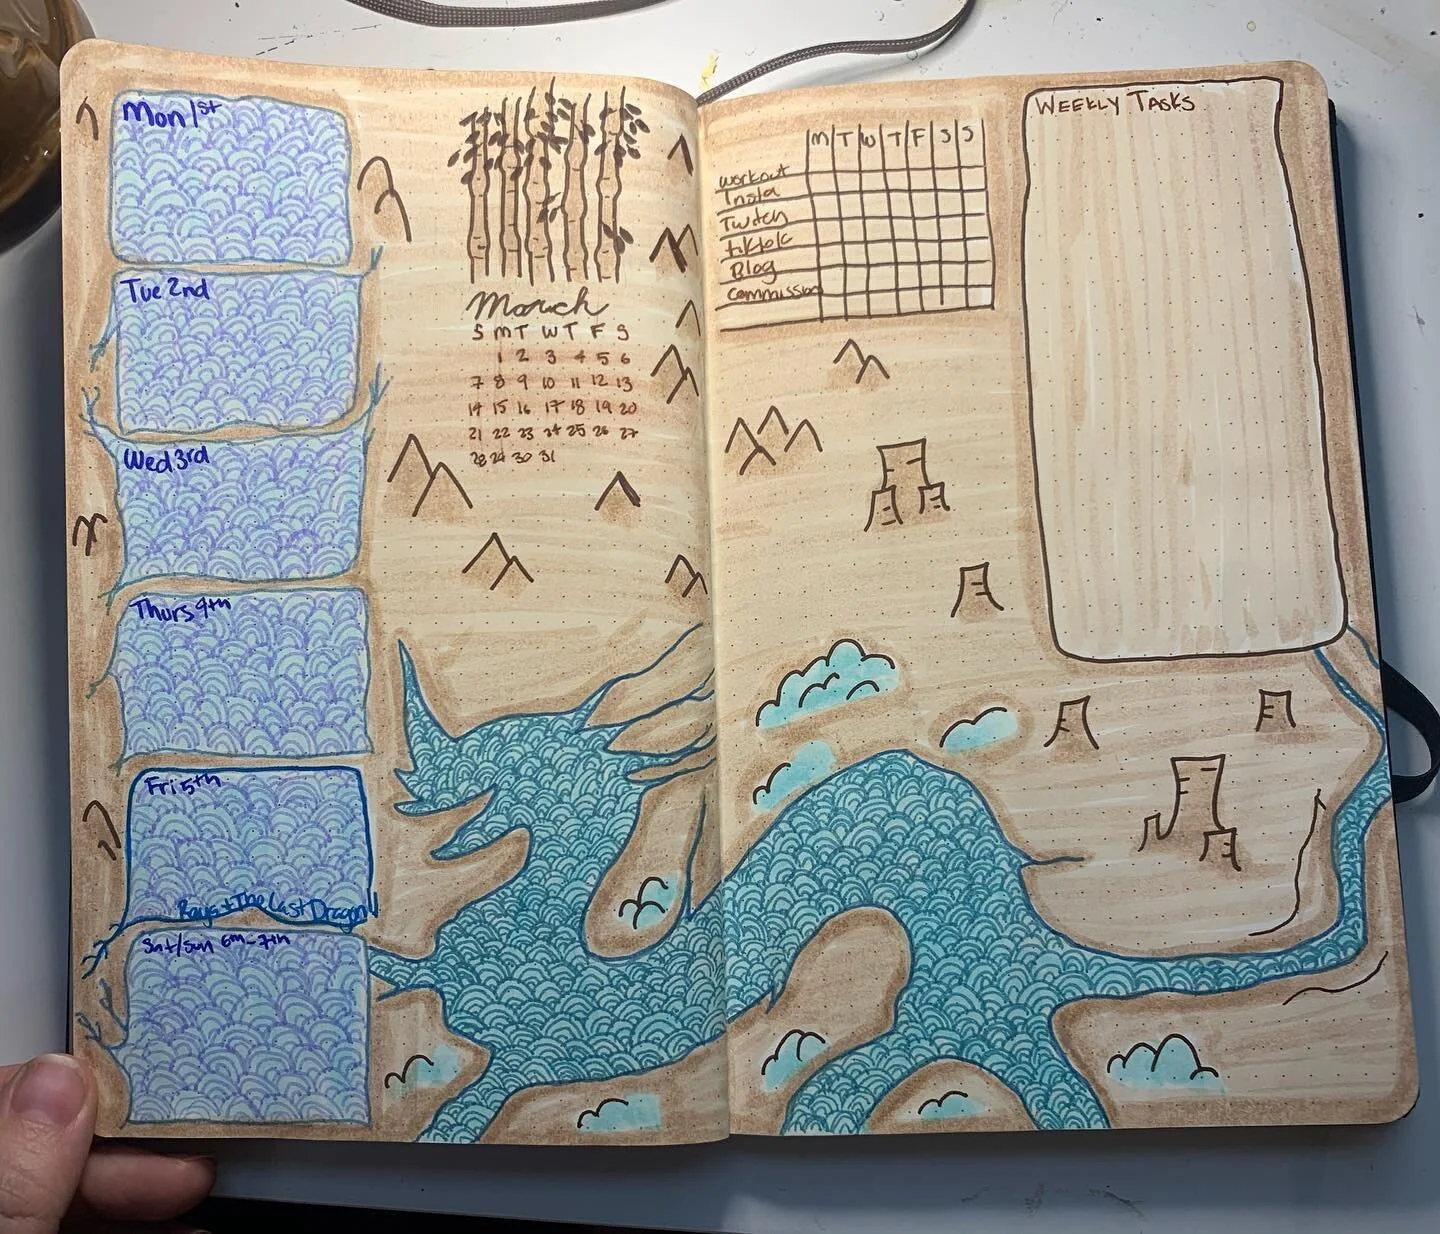 Mon 1st
Tue 2nd
Wed 3rd
Thurs 4th
Fri 5th
Raya + The Last Dragon
Sat/Sun 6th-7th
March
S M T W T F S
1 2 3 4 5 6
7 8 9 10 11 12 13
14 15 16 17 18 19 20
21 22 23 24 25 26 27
28 29 30 31
M T W T F S S
Workout
Insta
Twitch
tiktok
Blog
Commission
WEEKLY TASKS